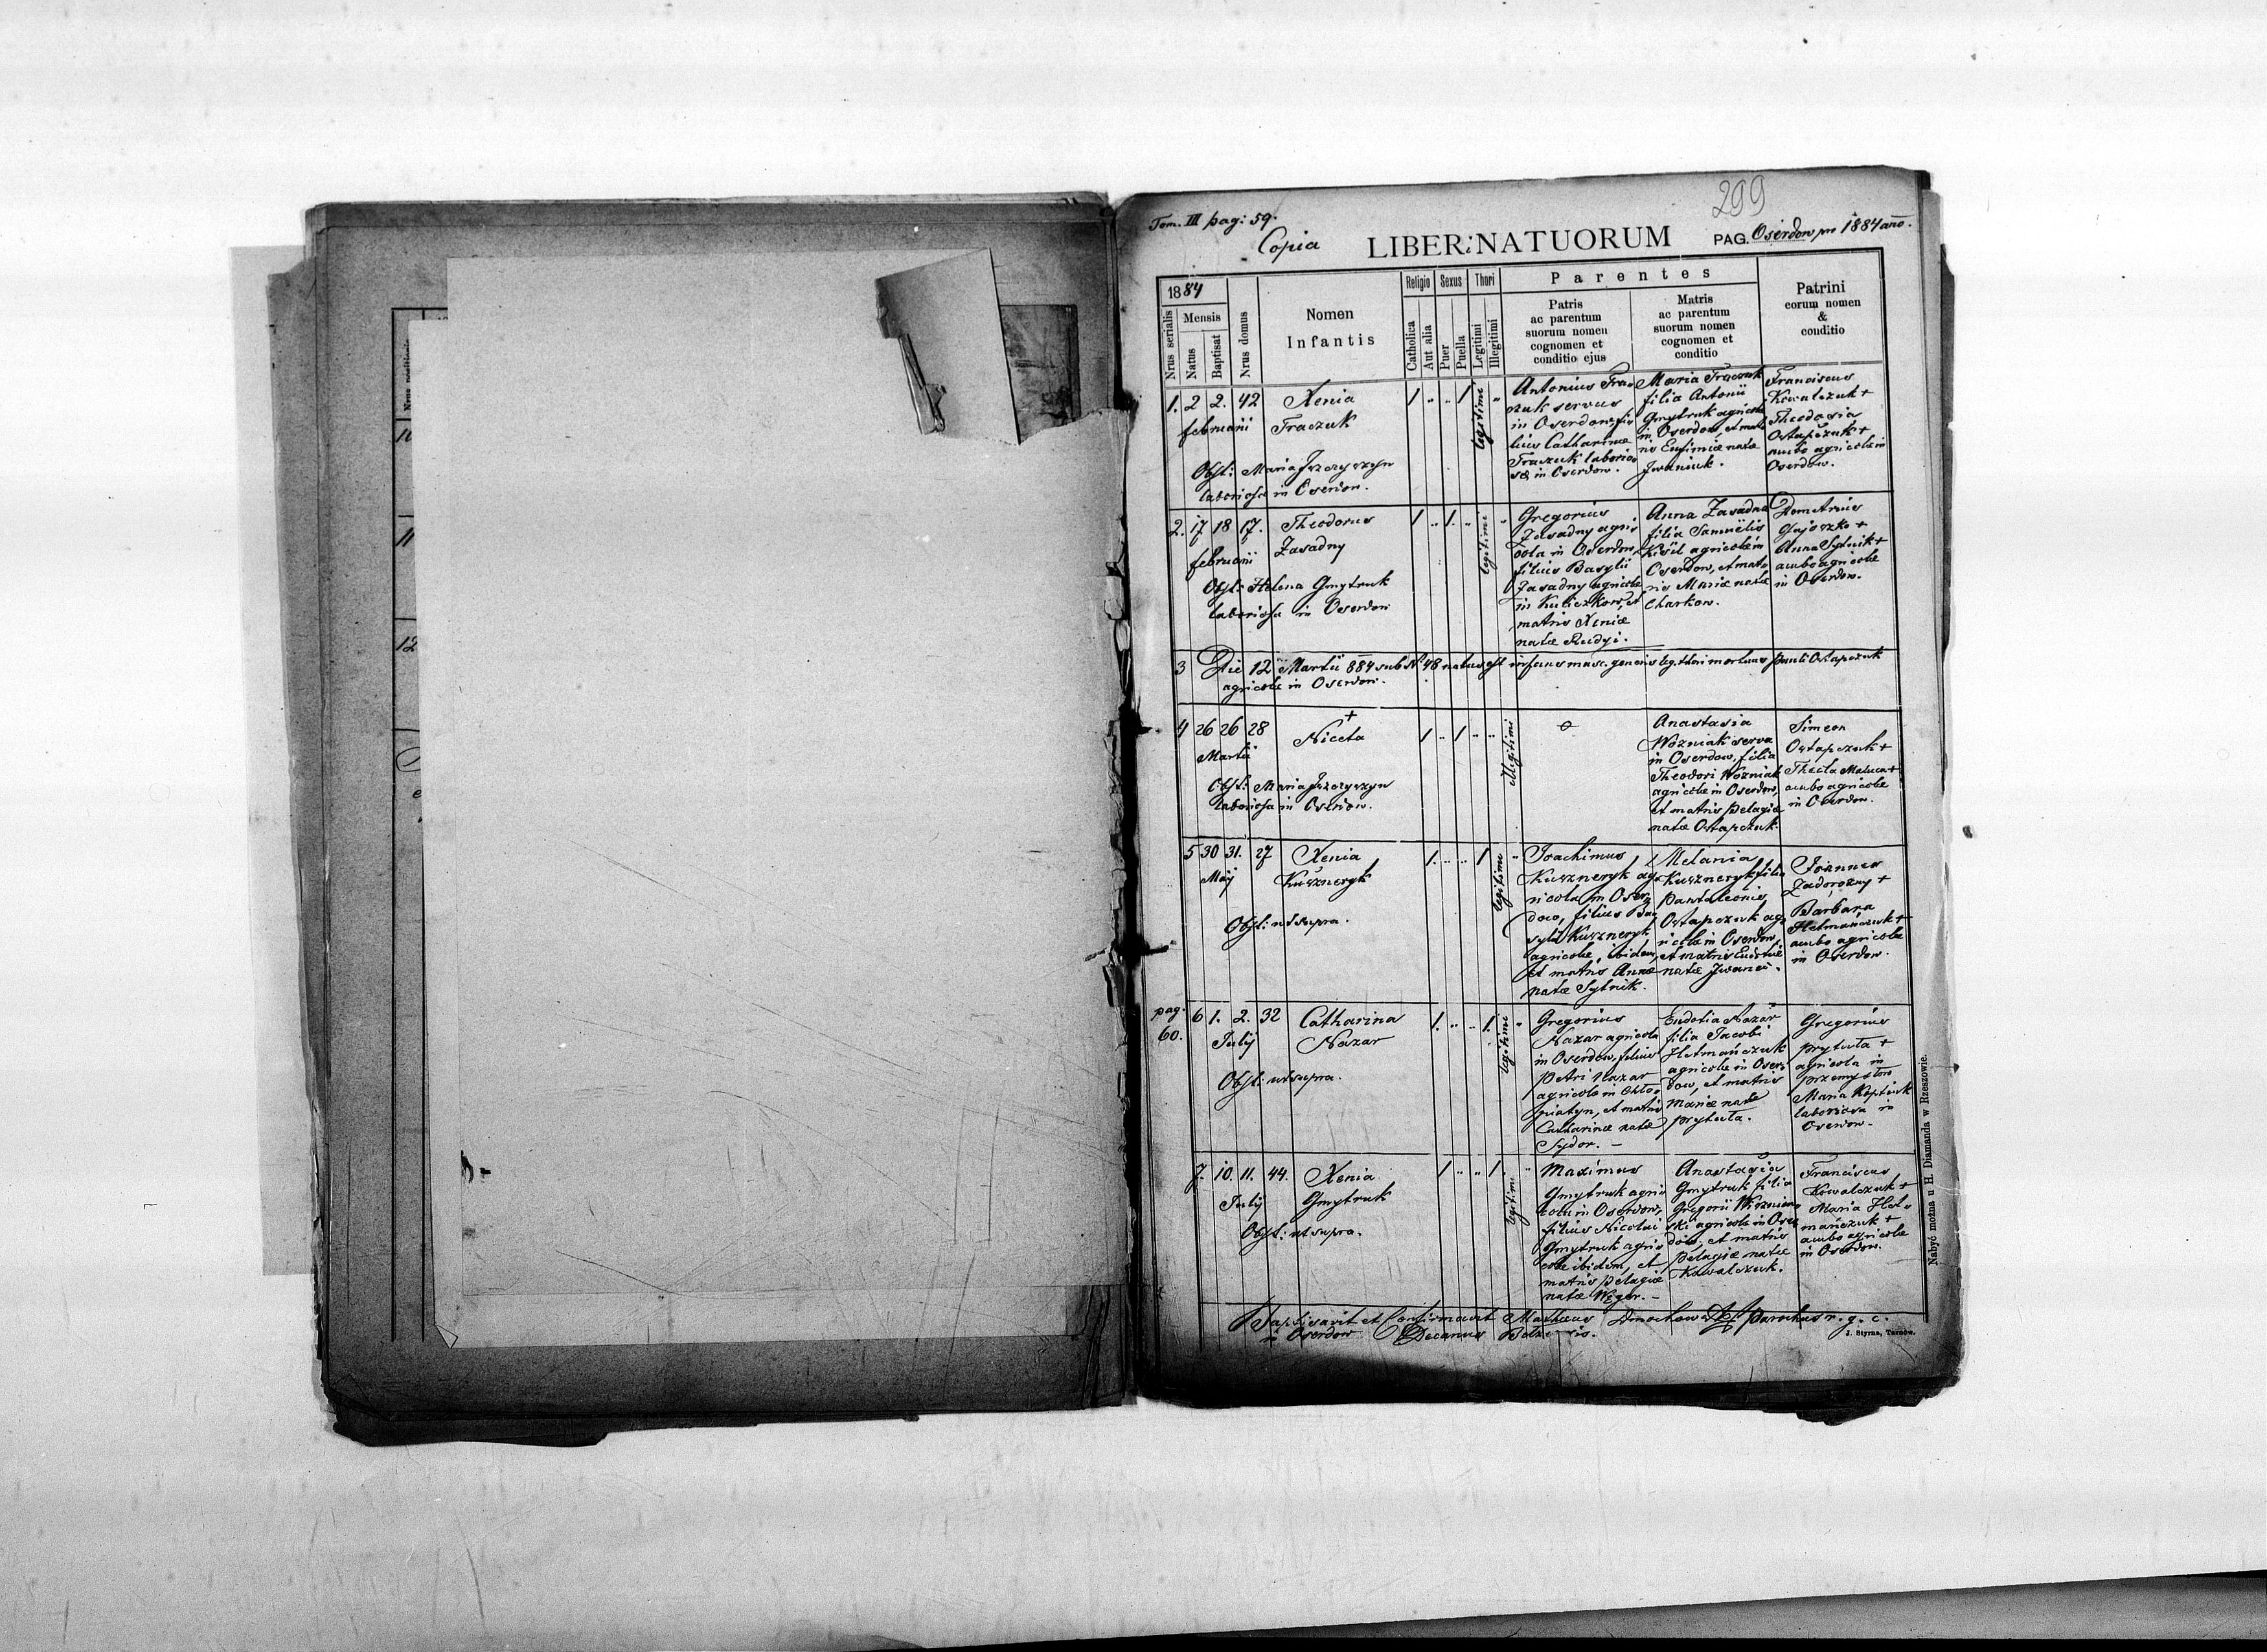 299
Tom. III pag: 59.
Copia LIBER NATUORUM PAG. Oserdow pro 1884 ano.
1884
Nrus serialis
Mensis
Natus
Baptisat
Nrus domus
Nomen
Infantis
Religio
Catholica
Aut alia
Sexus
Puer
Puella
Thori
Legitimi
Illegitimi
Parentes
Patris
ac parentum
suorum nomen
cognomen et
conditio ejus
Matris
ac parentum
suorum nomen
cognomen et
conditio
Patrini
eorum nomen
&
conditio
1. 2 2. 42 Xenia
februarii Traczuk
Obst: Maria
laboriosa in Oserdow.
1 .. .. 1 legitimi ..
Antonius Tra-
czuk servus
in Oserdow, fi-
lius Catharinae
Traczuk laborio-
sae in Oserdow.
Maria Traczuk
filia Antonii
Gmytruk agricolae
in Oserdow, et mat-
ris Eufimiae natae
Iwaniuk.
Franciscus
Kowalczuk +
Theodosia
Ostapczuk +
ambo agricolae in
Oserdow.
2. 17 18 17. Theodorus
februarii Zasadny
Obst: Helena Gmytruk
laboriosa in Oserdow
1 .. 1. .. legitimi ..
Gregorius
Zasadny agri-
cola in Oserdow,
filius Basylii
Zasadny agricolae
in Kuliczkow, et
matris Xeniae
natae Rudyj.
Anna Zasadna
filia Samuëlis
Kisil agricolae in
Oserdow, et mat-
ris Mariae natae
Charkow.
Demetrius
Gajoszko +
Anna Sytnik +
ambo agricolae
in Oserdow.
3 Die 12 Martii 884 sub N. 48 natus est infans masc. generis leg. thori mortuus Pauli Ostapczuk
agricolae in Oserdow.
4 26 26 28 +
Niceta
Martii
Obst: Maria
laboriosa in Oserdow.
1 .. 1 .. .. illegitimi
o
Anastasia
Wozniak serva
in Oserdow, filia
Theodori Wozniak
agricolae in Oserdow,
et matris Pelagiae
natae Ostapczuk.
Simeon
Ostapczuk +
Thecla Maluca +
ambo agricolae
in Oserdow.
5 30 31. 27 Xenia
Maij Kuszneryk
Obst: ut supra.
1. .. .. 1 legitimi ..
Joachimus
Kuszneryk ag-
ricola in Oser-
dow, filius Ba-
sylii Kuszneryk
agricolae, ibidem,
et matris Annae
natae Sytnik.
Melania
Kuszneryk filia
Pantaleonis
Ostapczuk ag-
ricolae in Oserdow,
et matris Eudotiae
natae Iwaneć.
Joannes
Zadorozny +
Barbara
Hetmańczuk +
ambo agricolae
in Oserdow.
pag.
60.
6 1. 2. 32 Catharina
Julij Nazar
Obst: ut supra.
1. .. .. 1. legitimi ..
Gregorius
Nazar agricola
in Oserdow, filius
Petri Nazar
agricolae in Chło-
piatyn, et matris
Catharinae natae
Sydor. —
Eudotia Nazar
filia Jacobi
Hetmańczuk
agricolae in Oser-
dow, et matris
Mariae natae
Prytuła.
Gregorius
Prytuła +
agricola in
Przemysłow
Maria Koptiuk
laboriosa in
Oserdow.
7. 10. 11. 44. Xenia
Julij Gmytruk
Obst: ut supra.
1 .. .. 1. legitimi ..
Maximus
Gmytruk agri-
cola in Oserdow,
filius Nicolai
Gmytruk agri-
colae ibidem, et
matris Pelagiae
natae Węgar. —
Anastasia
Gmytruk filia
Gregorii Woźnian-
ski agricolae in Oser-
dow, et matris
Pelagiae natae
Kowalczuk.
Franciscus
Kowalczuk +
Maria Het-
mańczuk +
ambo agricolae
in Oserdow.
Baptisavit et Confirmavit Matheus Parochus r. g. c.
in Oserdow Decanus
J. Styrna, Tarnów.
Nabyć można u H. Diamanda w Rzeszowie.
10
11
12